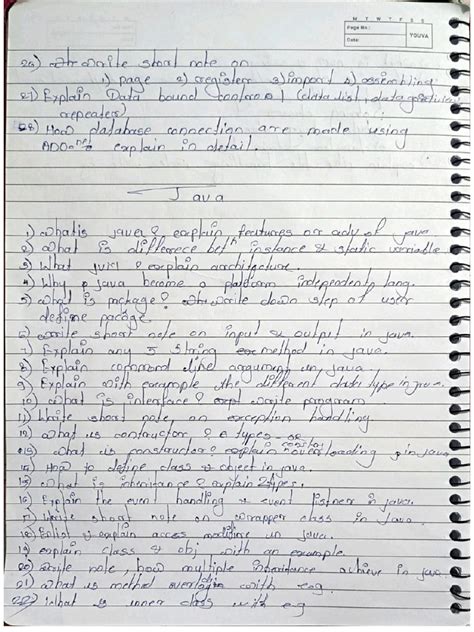 M T W T F S S
Page No.:
YOUVA
Date:
26) write short note on
1) page 2) register 3) import 4) assembling
27) Explain Data bound control (data list, datagridview
repeater)
28) How database connection are made using
ADO.net explain in detail.
Java
1) What is java? explain features or adv of java
2) What is differece betn instance & static variable
3) What JVM? explain architecture
4) Why java become a platform independent lang.
5) What is package? write down step of user
define pacage
6) write short note on input & output in java.
7) Explain any 5 string method in java.
8) Explain command line argument in java.
9) Explain with example the different data type in java.
10) What is interface? write program
11) Write short note on exception handling
12) What is contructor? & types
13) What is constructor overloading in java
14) How to define class & object in java.
15) What is inheritance? explain types.
16) Explain the event handling & event listner in java.
17) Write short note on wrapper class in java.
18) explain access modifier in java.
19) explain class & obj with an example.
20) write note, how multiple inheritance achieve in java.
21) What is method overloadin with eg.
22) What is inner class with e.g